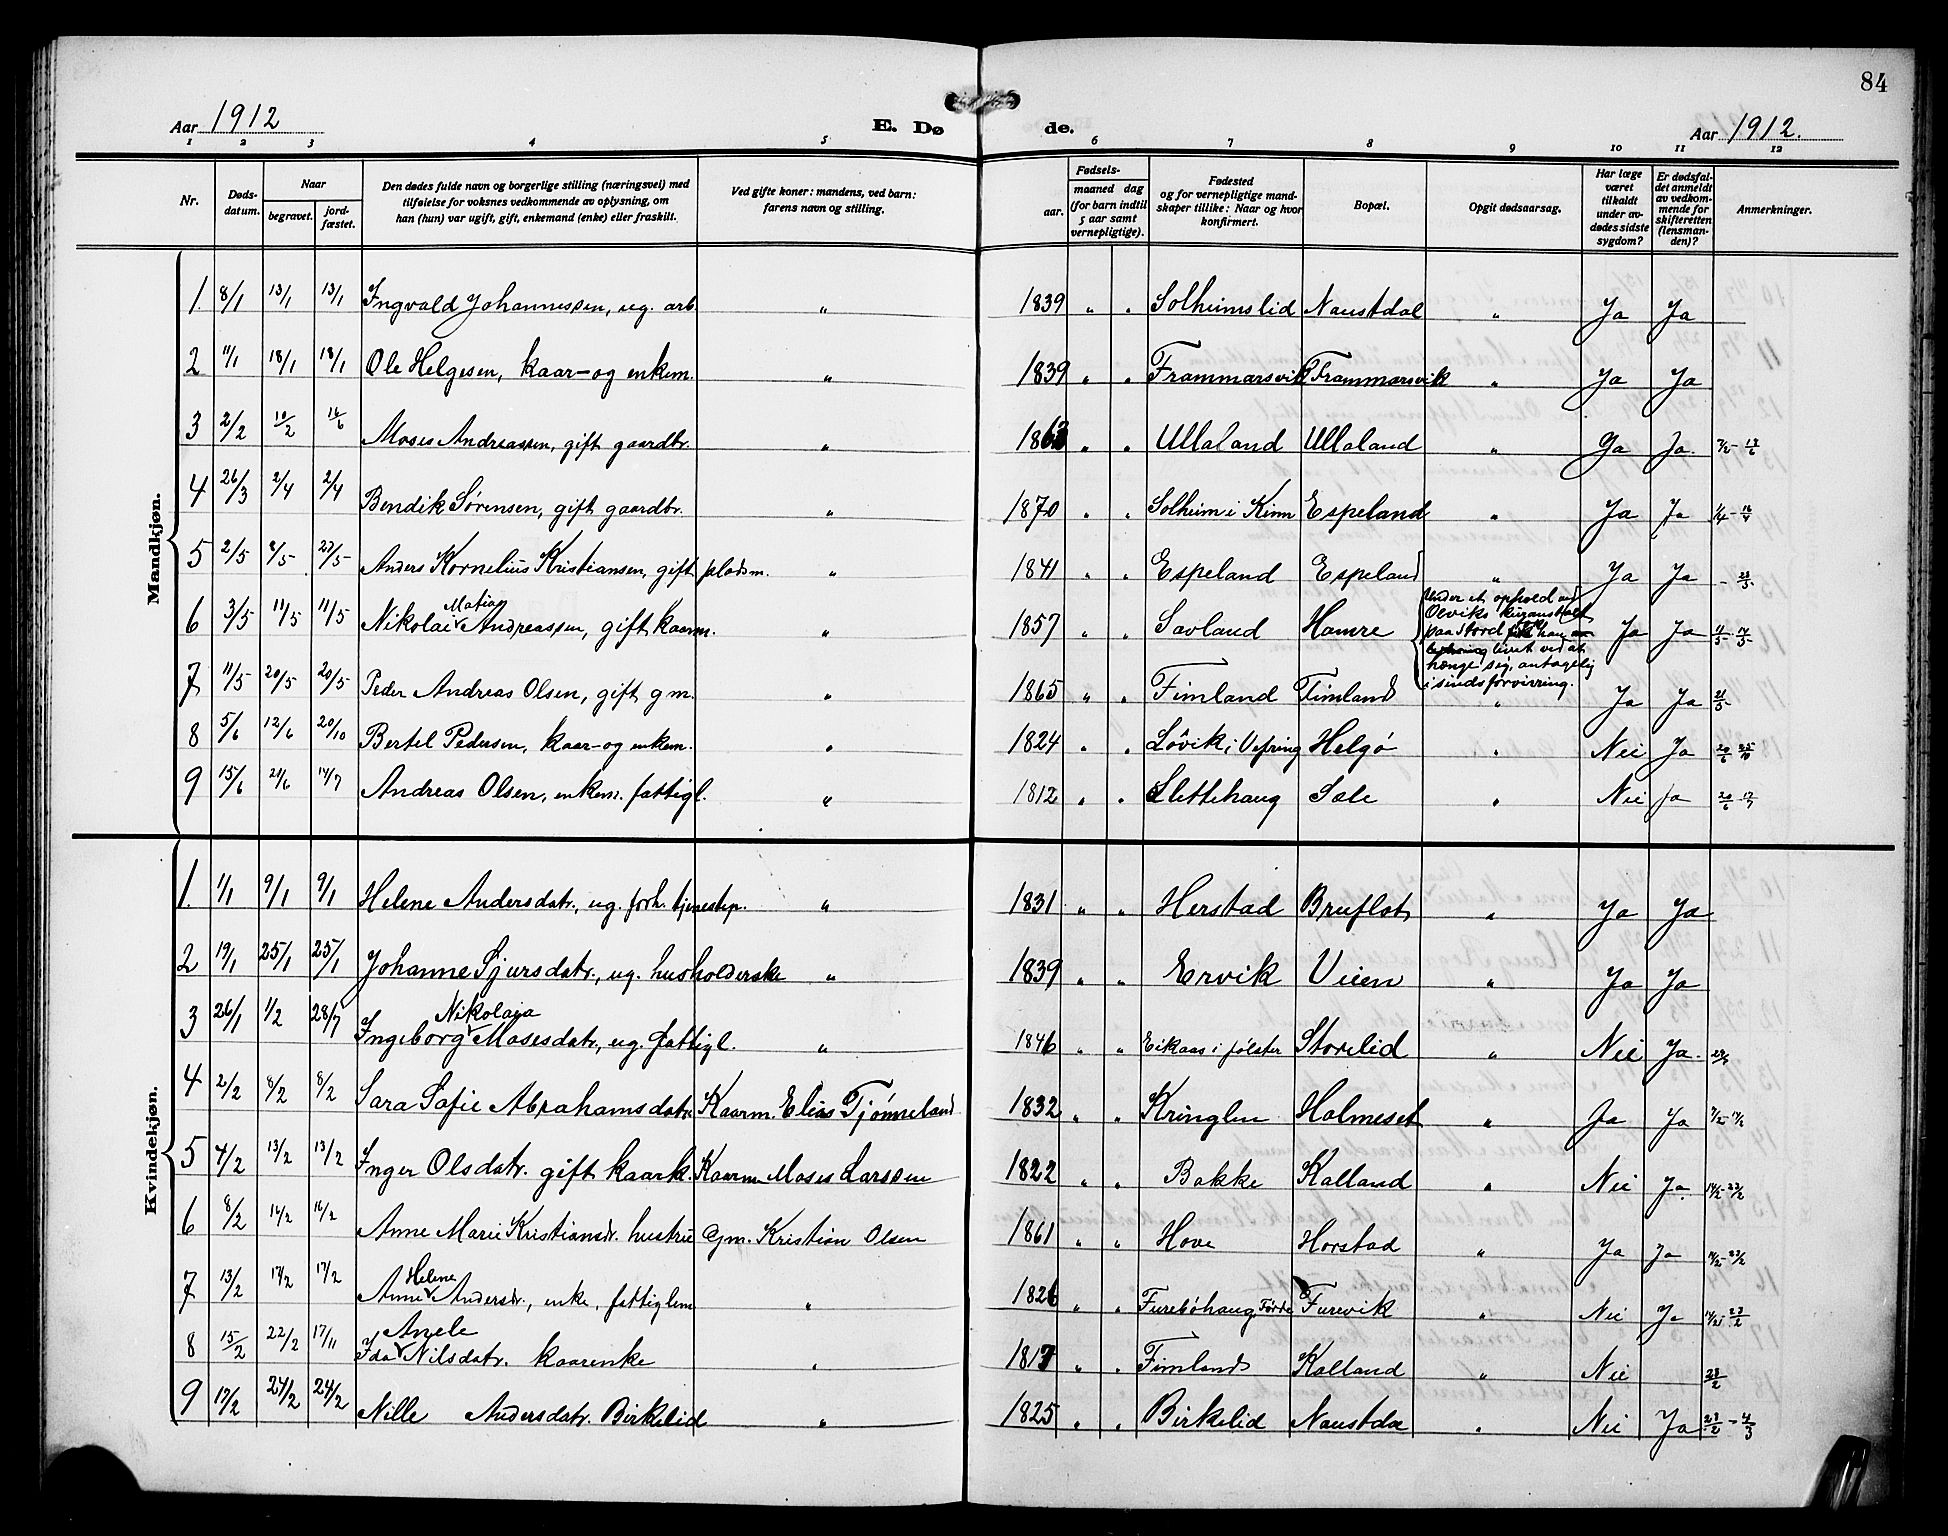 84
Aar 1912
E. Dø
de.
Aar 1912.
1 2 3 4 5 6 7 8 9 10 11 12
Nr.
Døds-
datum.
Naar
begravet.
jord-
fæstet.
Den dødes fulde navn og borgerlige stilling (næringsvei) med
tilføielse for voksnes vedkommende av oplysning, om
han (hun) var ugift, gift, enkemand (enke) eller fraskilt.
Ved gifte koner: mandens, ved barn:
farens navn og stilling.
Fødsels-
aar.
maaned dag
(for barn indtil
5 aar samt
vernepligtige).
Fødested
og for vernepligtige mand-
skaper tillike: Naar og hvor
konfirmert.
Bopæl.
Opgit dødsaarsag.
Har læge
været
tilkaldt
under av-
dødes sidste
sygdom?
Er dødsfal-
det anmeldt
av vedkom-
mende for
skifteretten
(lensman-
den)?
Anmerkninger.
Mandkjøn.
1. 8/1 13/1 13/1 Ingvald Johannessen, ug. arb. " 1839 " " Solheimslid Naustdal " Ja Ja
2 11/1 18/1 18/1 Ole Helgesen, kaar- og enkem. " 1839 " " Frammarsvik Frammarsvik " Ja Ja
3 2/2 10/2 16/6 Moses Andreassen, gift gaardbr. " 1863 " " Ullaland Ullaland " Ja Ja.
4 26/3 2/4 2/4 Bendik Sørensen, gift gaardbr. " 1870 " " Solheim i Kinn Espeland " Ja Ja
5 2/5 8/5 23/5 Anders Kornelius Kristiansen, gift pladsm. " 1841 " " Espeland Espeland " Ja Ja
Matias
6 3/5 11/5 11/5 Nikolai Andreassen, gift kaarm. " 1857 " " Savland Hamre Ja Ja 11/5 - 14/5
Under et ophold ved
Olviks kuranstalt
paa Stord han
livet ved at
hænge sig, antagelig
i sindsforvirring.
7 11/5 20/5 20/5 Peder Andreas Olsen, gift gm. " 1865 " " Fimland Fimland " Ja Ja 21/5
8 5/6 12/6 20/10 Bertel Pedersen, kaar- og enkem. " 1824 " " Løvik i Vefring Helgø " Nei Ja
9 15/6 20/6 14/7 Andreas Olsen, enkem. fattigl. " 1812 " " Slettehaug Sæle " Nei Ja
Kvindekjøn.
1. 1/1 9/1 9/1 Helene Andersdatr., ug. forh. tjenestep. " 1831 " " Herstad Bruflot " Ja Ja
2 19/1 25/1 25/1 Johanne Sjursdatr., ug. husholderske " 1839 " " Ervik Vieien " Ja Ja
Nikolaia
3 26/1 1/2 28/7 Ingeborg Mosesdatr., ug. fattigl. " 1846 " " Eikaas i Jølster Storelid " Nei Ja.
4 2/2 8/2 8/2 Sara Sofie Abrahamsdatr. Kaarm. Elias Tjønneland 1832 " " Kringlen Holmeset " Ja Ja
5 4/2 13/2 13/2 Inger Olsdatr. gift kaark. Kaarm. Moses Larssen 1822 " " Bakke Kalland " Nei Ja.
6 8/2 16/2 16/2 Anne Marie Kristiansdr. hustru Gm. Kristian Olsen 1861 " " Hove Horstad " Ja Ja
Helene
7 13/2 17/2 17/2 Anne Andersdr., enke, fattiglem " 1826 " " Furebøhaug, Førde Furevik " Nei Ja
Anele
8 15/2 22/2 17/11 Ida Nilsdatr. kaarenke " 1817 " " Fimland Kalland " Nei 23/2
9 17/2 24/2 24/2 Nille Andersdatr. Birkelid " 1825 " " Birkelid Naustdal " Nei Ja 23/2 - 4/3